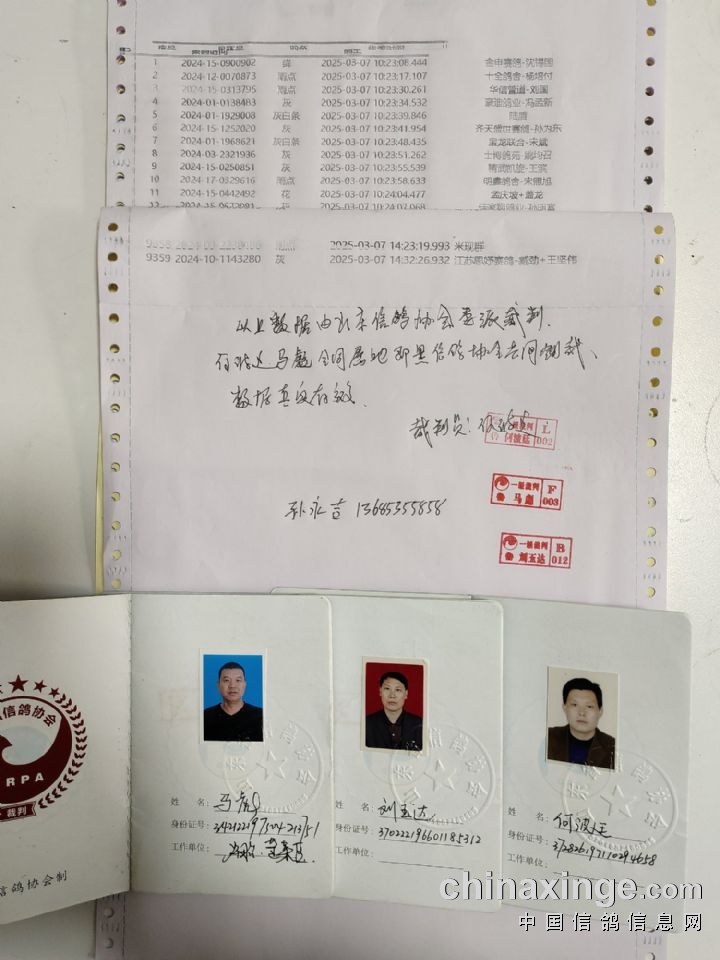 1 2024-15-0900902 绛 2025-03-07 10:23:08.444 金申赛鸽-沈锡国
2 2024-12-0070873 雨点 2025-03-07 10:23:17.107 十全鸽舍-杨培付
3 2024-15-0313795 雨点 2025-03-07 10:23:30.261 华信管道-刘国
4 2024-01-0138483 灰 2025-03-07 10:23:34.532 豪迪鸽业-冯孟新
5 2024-01-1929008 灰白条 2025-03-07 10:23:39.846
6 2024-15-1252020 灰 2025-03-07 10:23:41.954 齐天盛世赛鸽-孙为东
7 2024-01-1968621 灰白条 2025-03-07 10:23:48.435 枭龙联合-宋斌
8 2024-03-2321936 灰 2025-03-07 10:23:51.262
9 2024-15-0250851 灰 2025-03-07 10:23:55.539 精武凯旋-王滨
10 2024-17-0129616 雨点 2025-03-07 10:23:58.633
11 2024-15-0442492 花 2025-03-07 10:24:04.477 孟庆坡+董龙
12 2025-03-07 10:24:07.068
9358 雨点 2025-03-07 14:23:19.993 米现群
9359 2024-10-1143280 灰 2025-03-07 14:32:26.932 江苏熙妤赛鸽-臧劲+王坚伟
以上数据由山东信鸽协会委派裁判
何波廷马彪会同属地即墨信鸽协会共同制裁、
数据真实有效.
裁判员:
何波廷 L 002
一级裁判 F
马彪 003
孙永吉 13685355858
一级裁判 B
刘玉达 012
信鸽协会
RPA
裁判
信鸽协会制
姓 名: 马彪
身份证号:
工作单位:
姓 名: 刘玉达
身份证号: 370222196601185312
工作单位:
姓 名: 何波廷
身份证号: 372826197110294658
工作单位:
chinaxinge.com
中国信鸽信息网